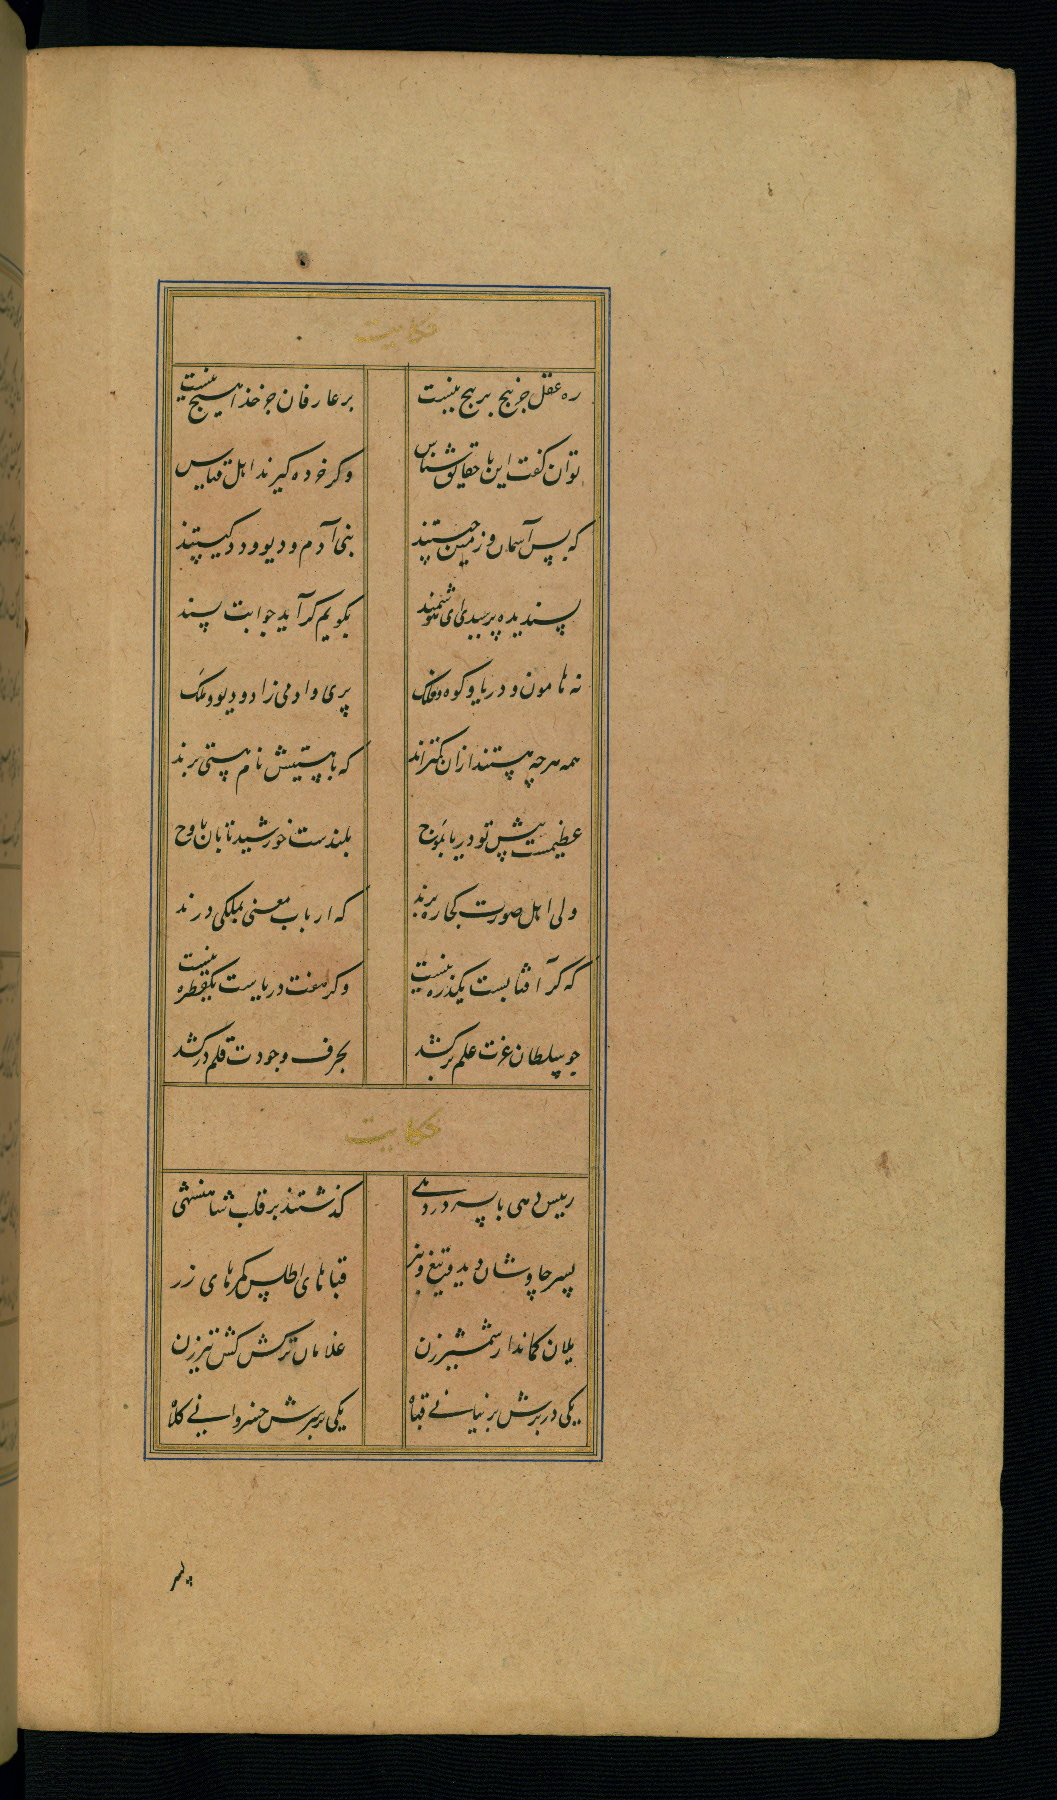 حکایت
ره عقل جز پیچ بر پیچ نیست بر عارفان جز خدا هیچ نیست
توان گفت این با حقایق شناس وگر خرده گیرند اهل قیاس
که پس آسمان و زمین چیستند بنی آدم و دیو و دد کیستند
پسندیده پرسیدی ای هوشمند بگویم گر آید جوابت پسند
نه هامون و دریا و کوه و فلک پری و ادمی زاد و دیو و ملک
همه هرچه هستند ازان کمتراند که با هستیش نام هستی برند
عظیمست پیش تو دریا بموج بلندست خورشید تابان باوج
ولی اهل صورت کجا ره برند که ارباب معنی بملکی درند
که گر آفتابست یکذره نیست وگر هفت دریاست یکقطره نیست
چو سلطان عزت علم برکشد بحرف وجودت قلم درکشد
حکایت
رییس دهی با پسر در رهی گذشتند بر قلب شاهنشهی
پسر چاوشان دید و تیغ و تبر قباهای اطلس کمرهای زر
یلان کماندار شمشیرزن غلامان ترکش کش تیرزن
یکی در برش پرنیانی قباه یکی بر سرش خسروانی کلاه
پسر